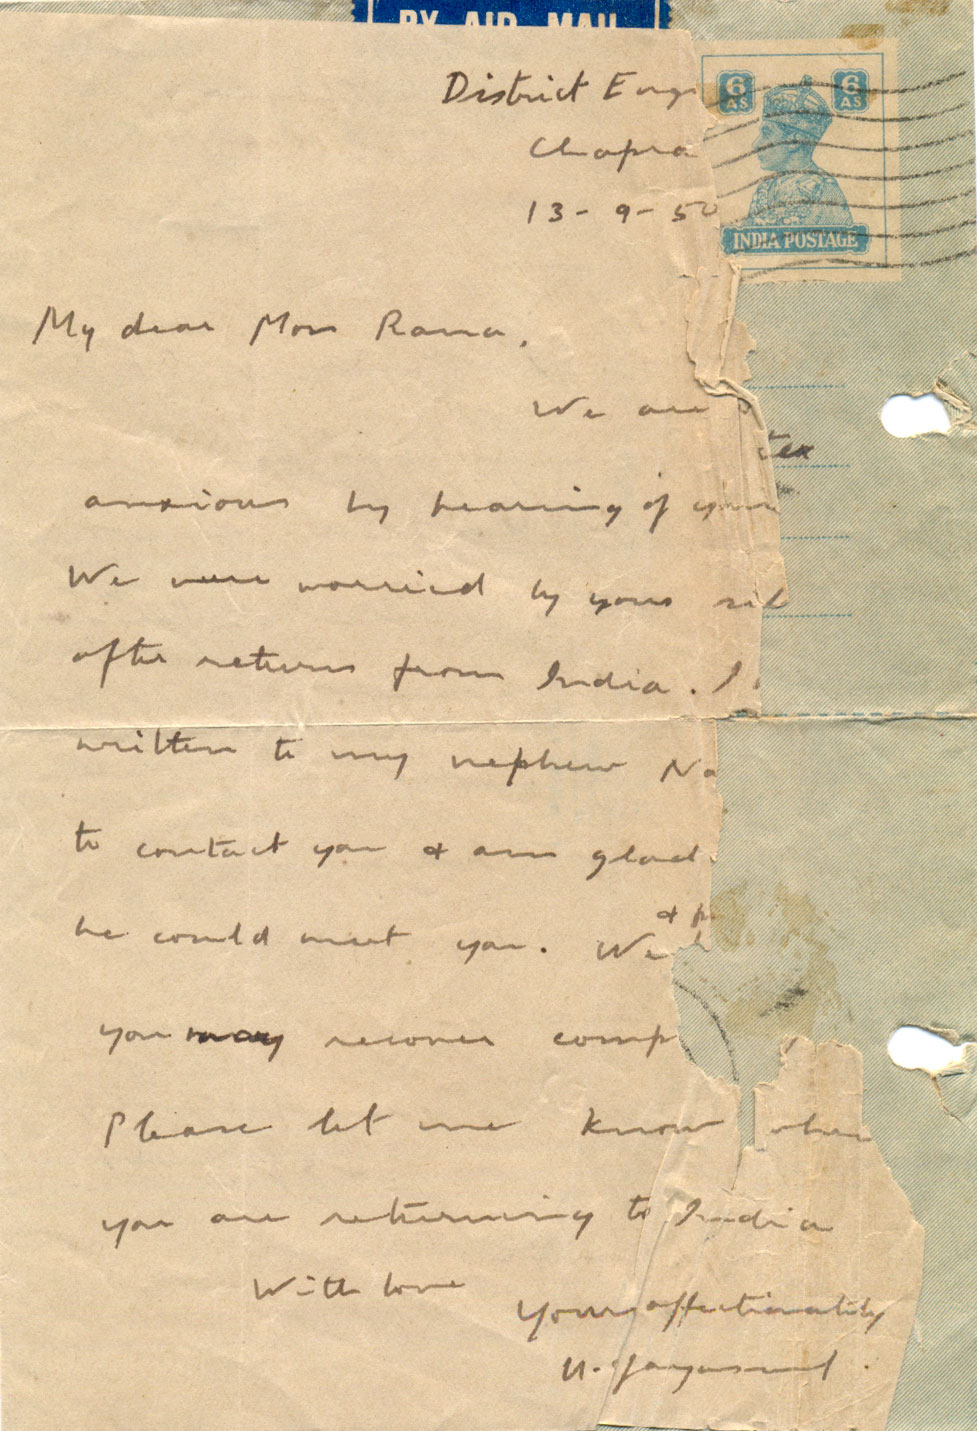 BY AIR MAIL
6 AS 6 AS
INDIA POSTAGE
District Eng
Chapra
13-9-50
My dear Mon Rama,
We are
anxious by hearing of your
We were worried by your sil
after return from India. I
written to my nephew Na
to contact you & am glad
& p
he could meet you. We
you may recover comp
Please let me know when
you are returning to India
With love
Yours affectionately